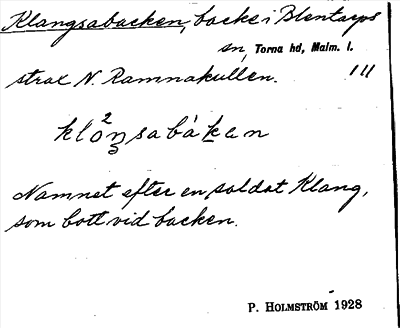 Klangsabacken, backe i Blentarps
sn, Torna hd, Malm. l.
strax N. Ramnakullen. 1 11
klo²ŋsabàkan
Namnet efter en soldat Klang,
som bott vid backen.
P. HOLMSTRÖM 1928